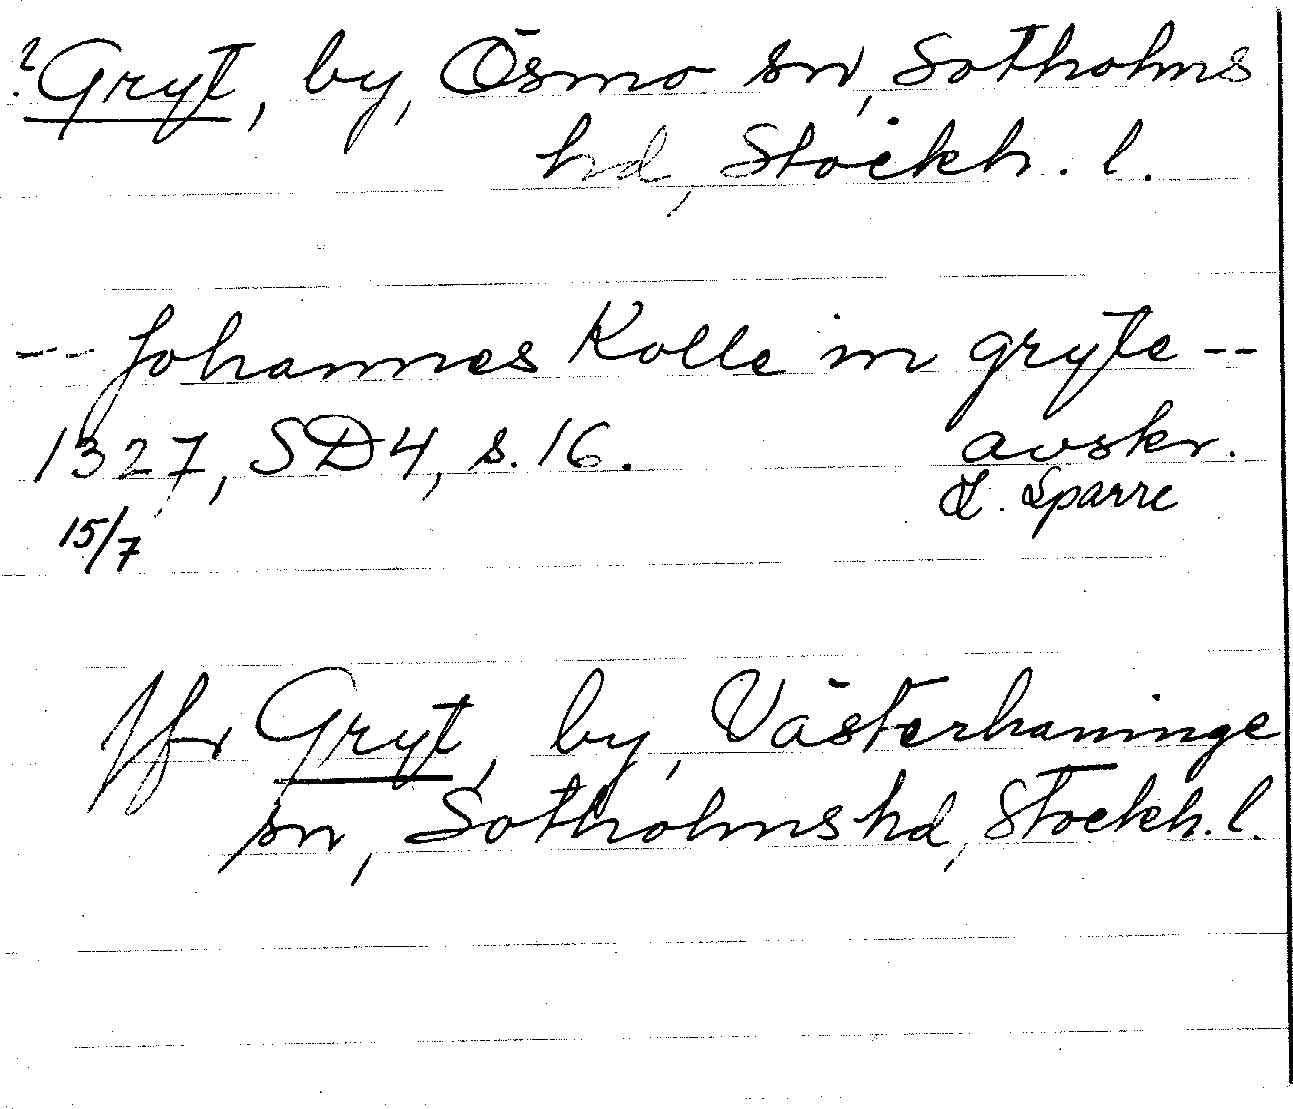 ?Gryt, by, Ösmo sn, Sotholms
hd, Stockh. l.
-- Johannes Kolle in gryte --
1327, SD4, s. 16. avskr.
15/7 L. Sparre
Jfr Gryt, by, Västerhaninge
sn, Sotholms hd, Stockh. l.